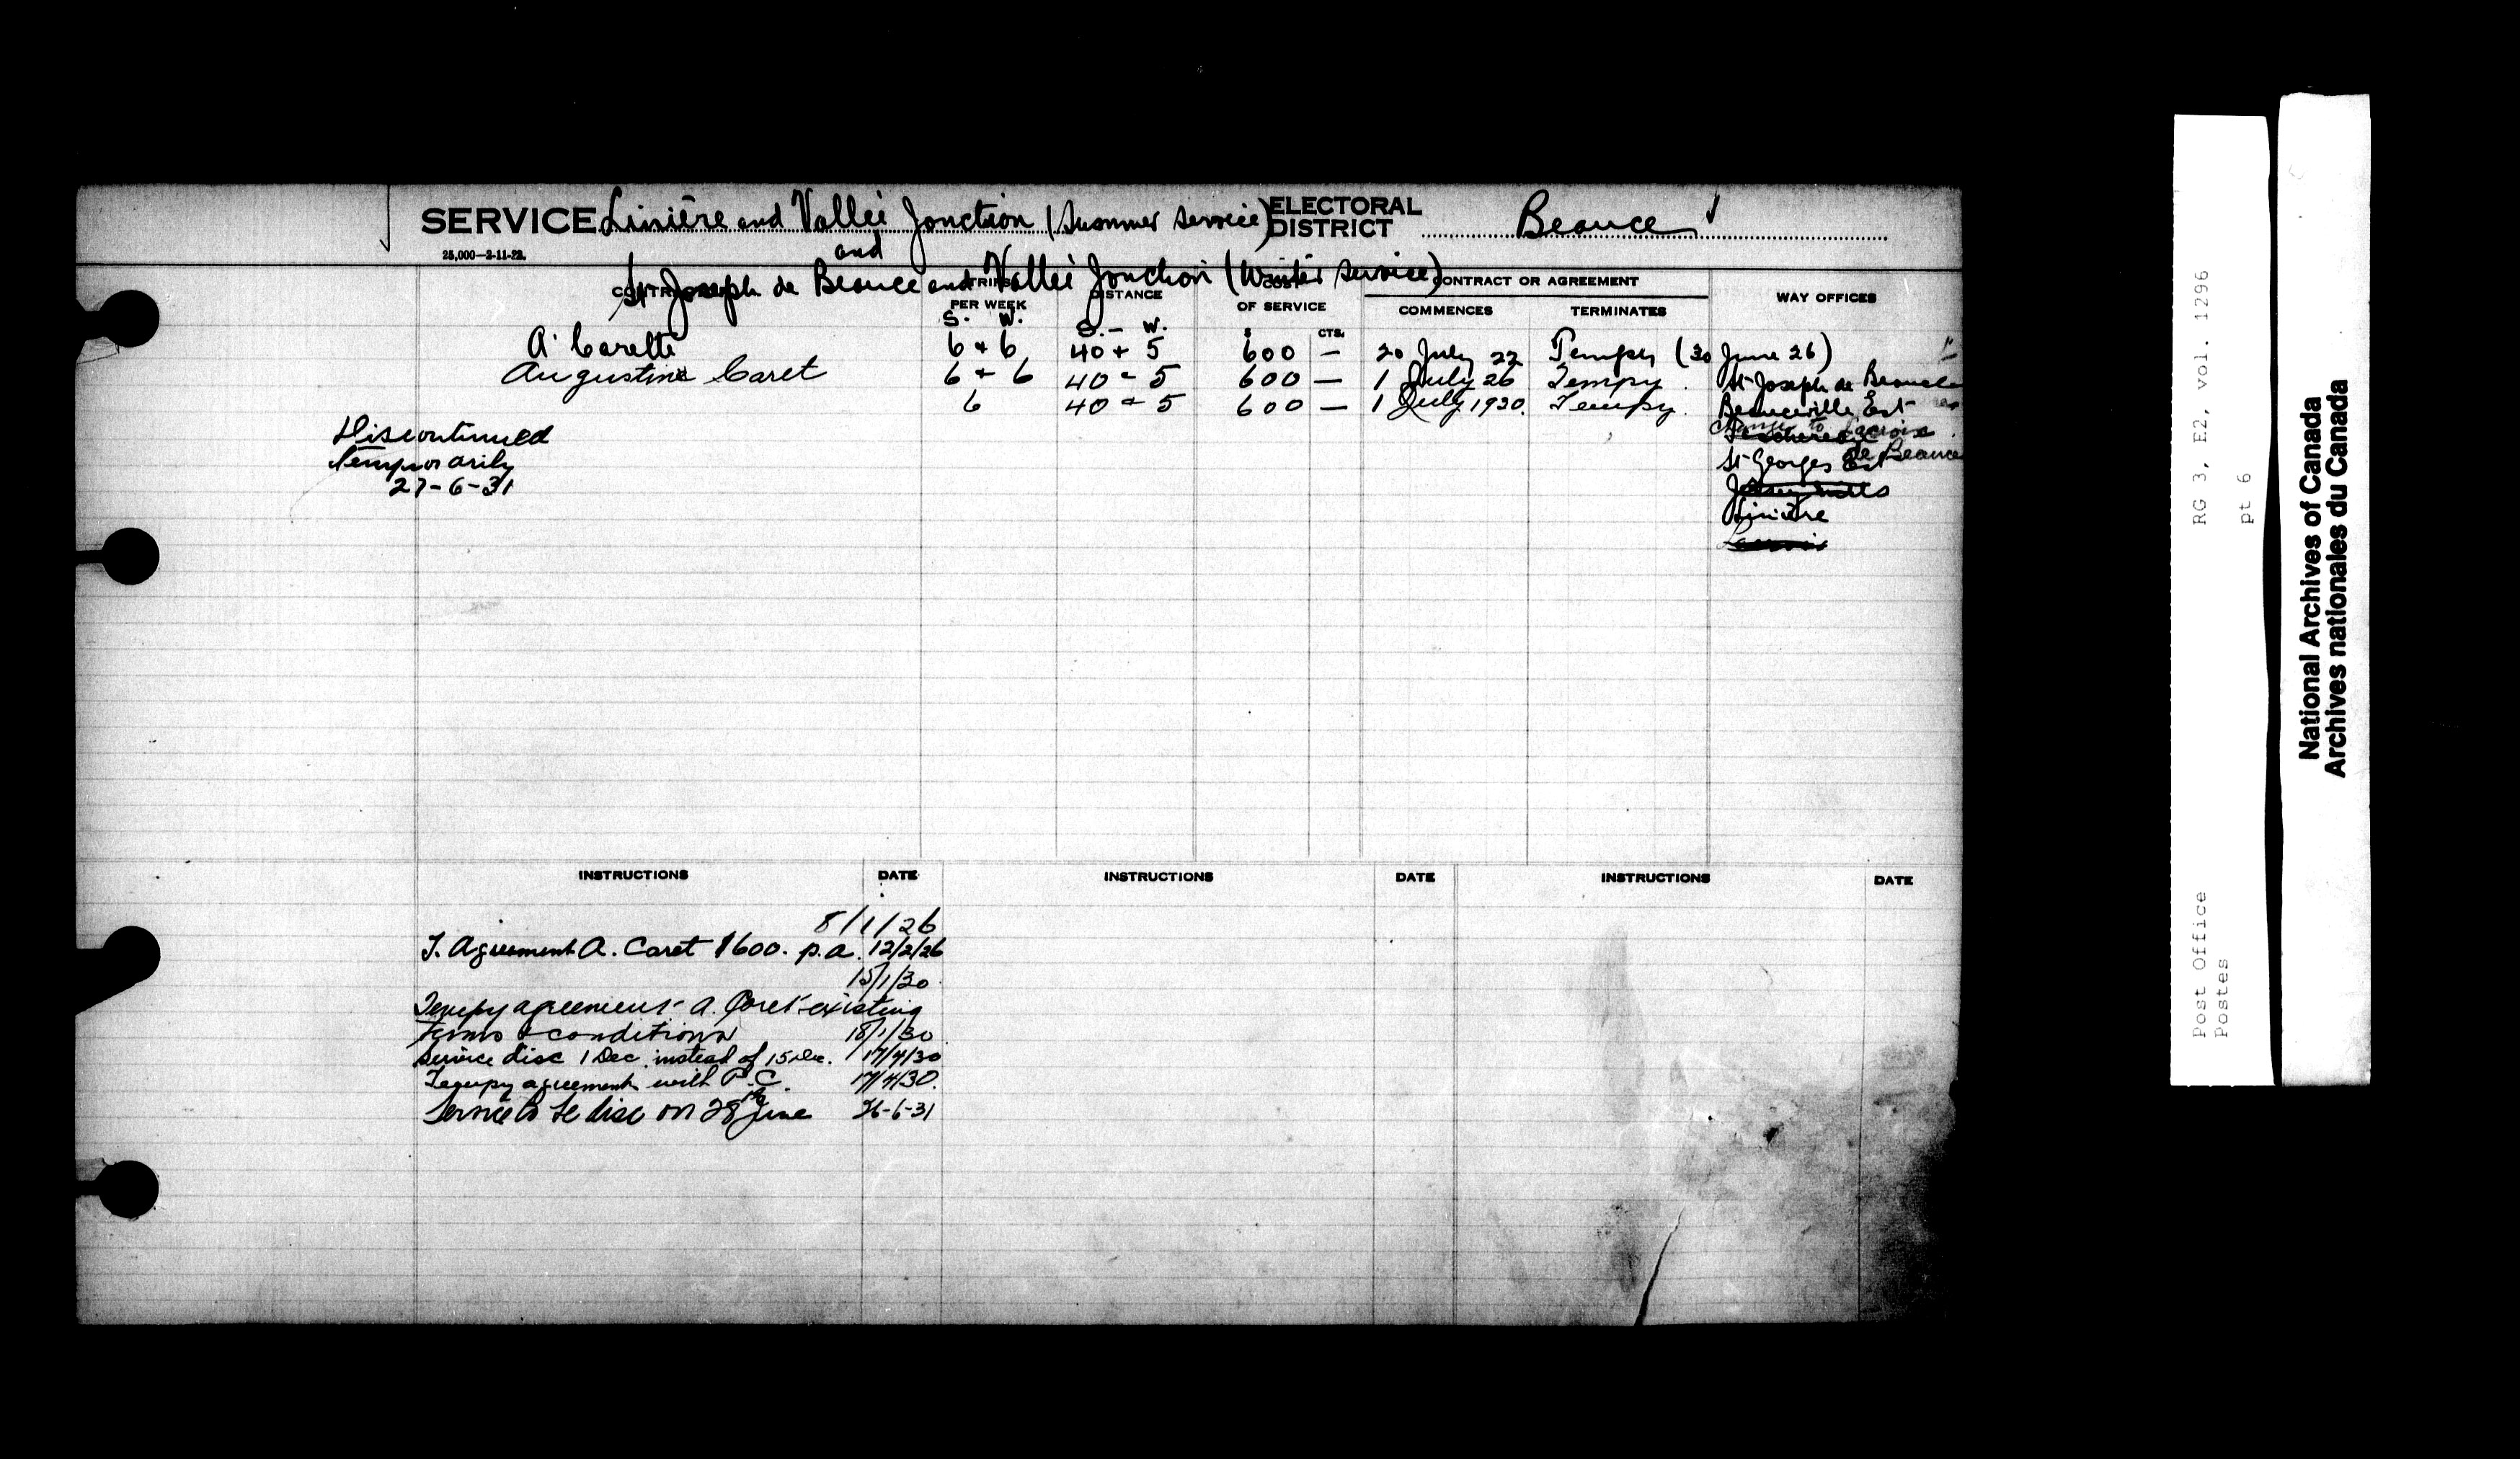 SERVICE Linière and Vallée Jonction (Summer Service) ELECTORAL DISTRICT Beauce
25,000—2-11-22.
and
St Joseph de Beauce and Vallée Jonction (Winter Service)
TRIPS PER WEEK DISTANCE OF SERVICE CONTRACT OR AGREEMENT WAY OFFICES
COMMENCES TERMINATES
S. W. S. - W. $ CTS.
A. Carette 6 + 6 40 + 5 600 — 20 July 22 Tempy (30 June 26)
Augustine Caret 6 + 6 40 - 5 600 — 1 July 26 Tempy. St Joseph de Beauce
6 40 - 5 600 — 1 July 1930. Tempy. Beauceville Est
change to Lacroix
de Beauce
St Georges Est
Jersey Mills
Linière
Lacroix
Discontinued
Temporarily
27-6-31
INSTRUCTIONS DATE INSTRUCTIONS DATE INSTRUCTIONS DATE
8/1/26
T. Agreement A. Caret $600. p.a. 12/2/26
15/1/30
Tempy agreement - A. Caret - existing
terms & conditions 18/1/30
Service disc 1 Dec. instead of 15 Dec. 17/4/30
Tempy agreement with P.C. 17/4/30.
Service to be disc on 28th June 26-6-31
RG 3, E2, vol. 1296
pt 6
Post Office
Postes
National Archives of Canada
Archives nationales du Canada